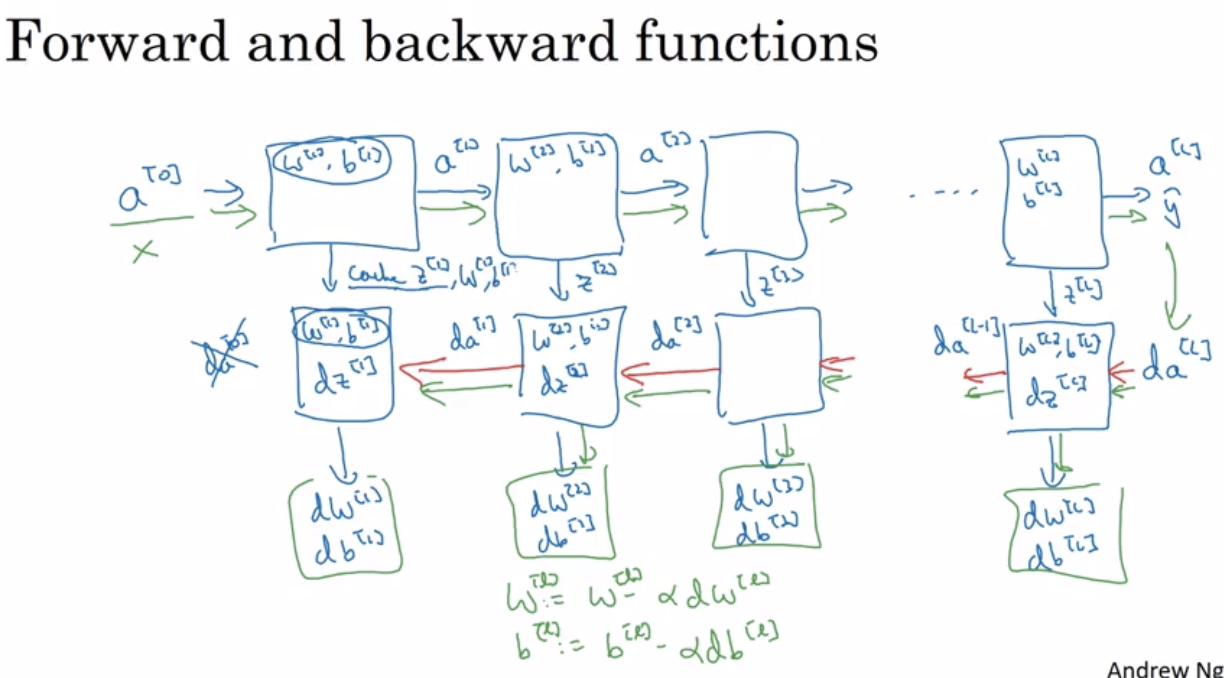 Forward and backward functions
a^[0] w^[1], b^[1] a^[1] w^[2], b^[2] a^[2] .... w^[L] a^[L]
x b^[L] ŷ
cache z^[1], w^[1], b^[1] z^[2] z^[3] z^[L]
da^[0] w^[1], b^[1] da^[1] w^[2], b^[2] da^[2] da^[L-1] w^[L], b^[L] da^[L]
dz^[1] dz^[2] dz^[L]
dw^[1] dw^[2] dw^[3] dw^[L]
db^[1] db^[2] db^[3] db^[L]
w^[l] := w^[l] - α dw^[l]
b^[l] := b^[l] - α db^[l]
Andrew Ng